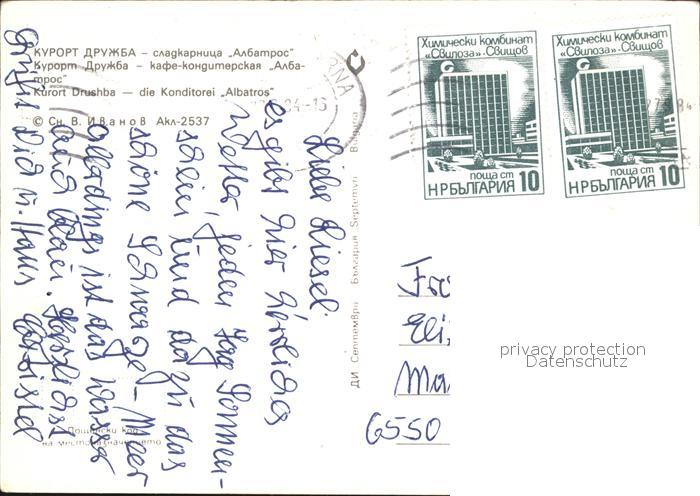 КУРОРТ ДРУЖБА – сладкарница „Албатрос"
Курорт Дружба – кафе-кондитерская „Алба-
трос"
Kurort Drushba — die Konditorei „Albatros"
© Сн. В. Иванов Акл-2537
Химически комбинат
„Свилоза" - Свищов
поща ст
НР БЪЛГАРИЯ 10
Химически комбинат
„Свилоза" - Свищов
поща ст
НР БЪЛГАРИЯ 10
84-15
84
Liebe Liesel!
es gibt hier herrliches
Wetter, jeden Tag Sonnen-
schein und dazu das
schöne Schwarze - Meer
allerdings ist das Wasser
Herzlichst
Grüßt Dich u. Hans
ДИ Септември България Septemvri Bulgaria
Пощенски код
на местоназначението
Fr
Eli
Ma
6550
privacy protection
Datenschutz